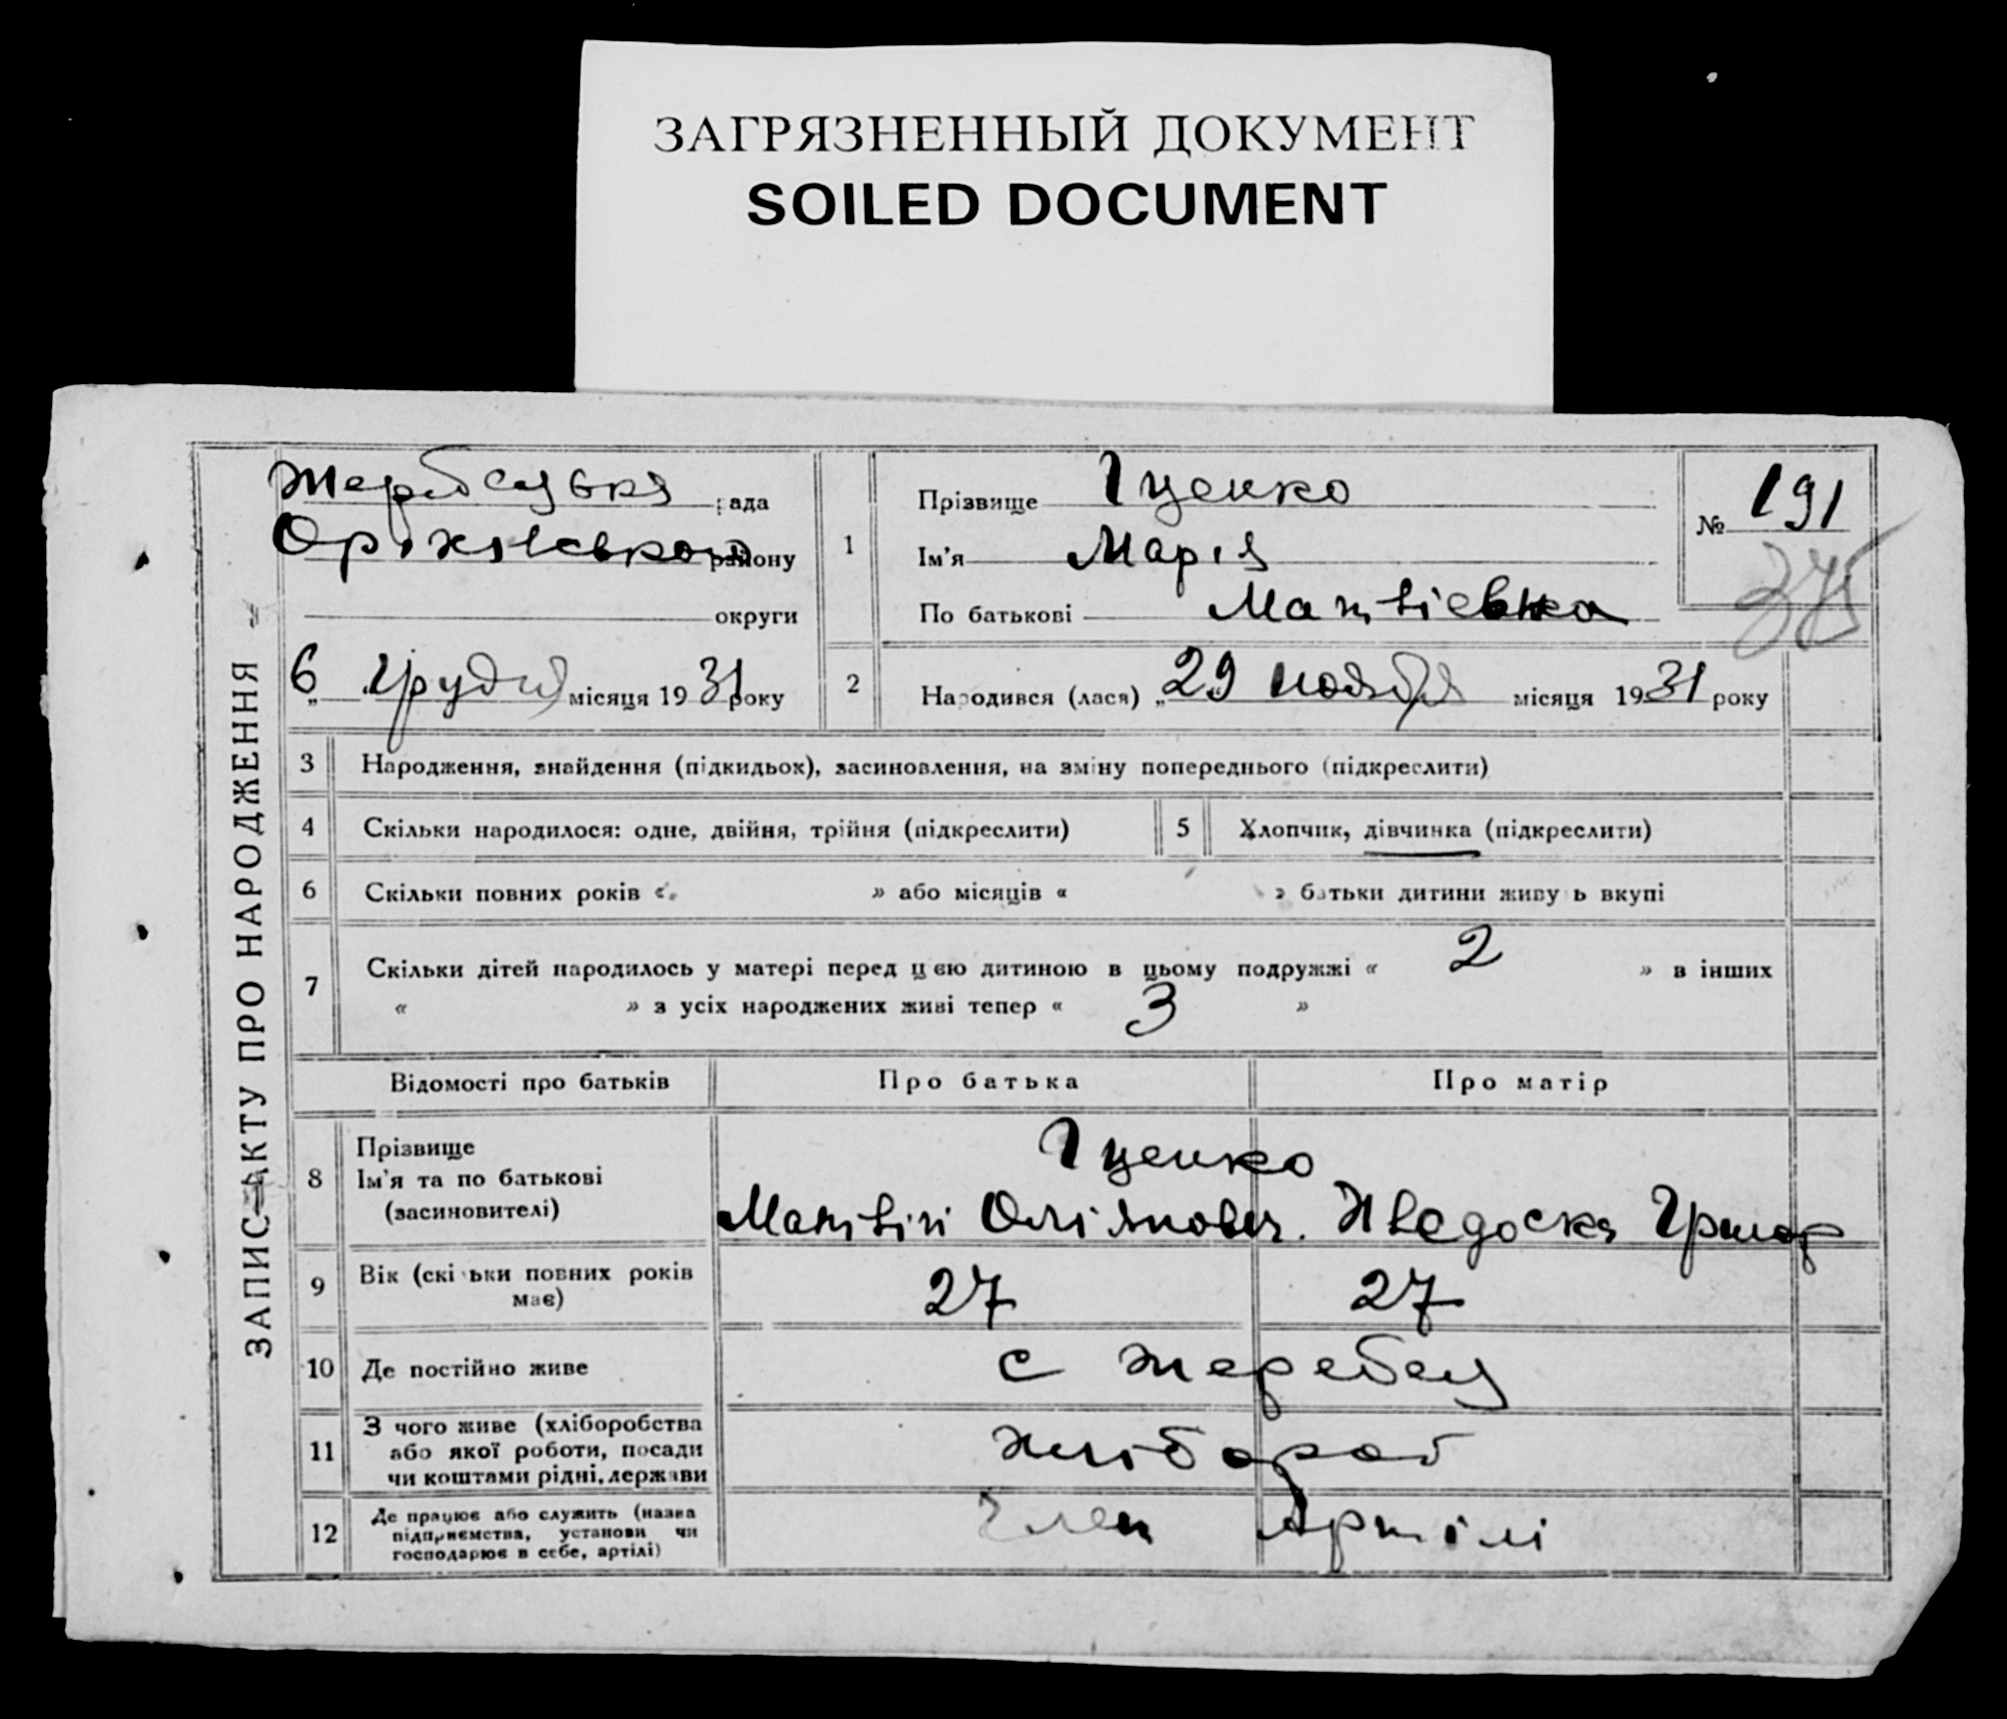 ЗАГРЯЗНЕННЫЙ ДОКУМЕНТ
SOILED DOCUMENT
ЗАПИС АКТУ ПРО НАРОДЖЕННЯ
Жеребецька рада
Оріхівського району
округи
„6 грудня місяця 1931 року
1
Прізвище Гуенко
Ім'я Марія
По батькові Матвієвна
№ 191
375
2 Народився (лася) „29 ноября місяця 1931 року
3 Народження, знайдення (підкидьох), засиновлення, на зміну попереднього (підкреслити)
4 Скільки народилося: одне, двійня, трійня (підкреслити) 5 Хлопчик, дівчинка (підкреслити)
6 Скільки повних років « » або місяців « » батьки дитини живуть вкупі
7 Скільки дітей народилось у матері перед цією дитиною в цьому подружжі « 2 » в інших
« » з усіх народжених живі тепер « 3 »
Відомості про батьків Про батька Про матір
8 Прізвище
Ім'я та по батькові
(засиновителі)
Гуенко
Матвій Григор
9 Вік (скільки повних років
має)
27 27
10 Де постійно живе с Жеребец
11 З чого живе (хліборобства
або якої роботи, посади
чи коштами рідні, держави
хлібороб
12 Де працює або служить (назва
підприємства, установи чи
господарює в себе, артілі)
Член Артілі